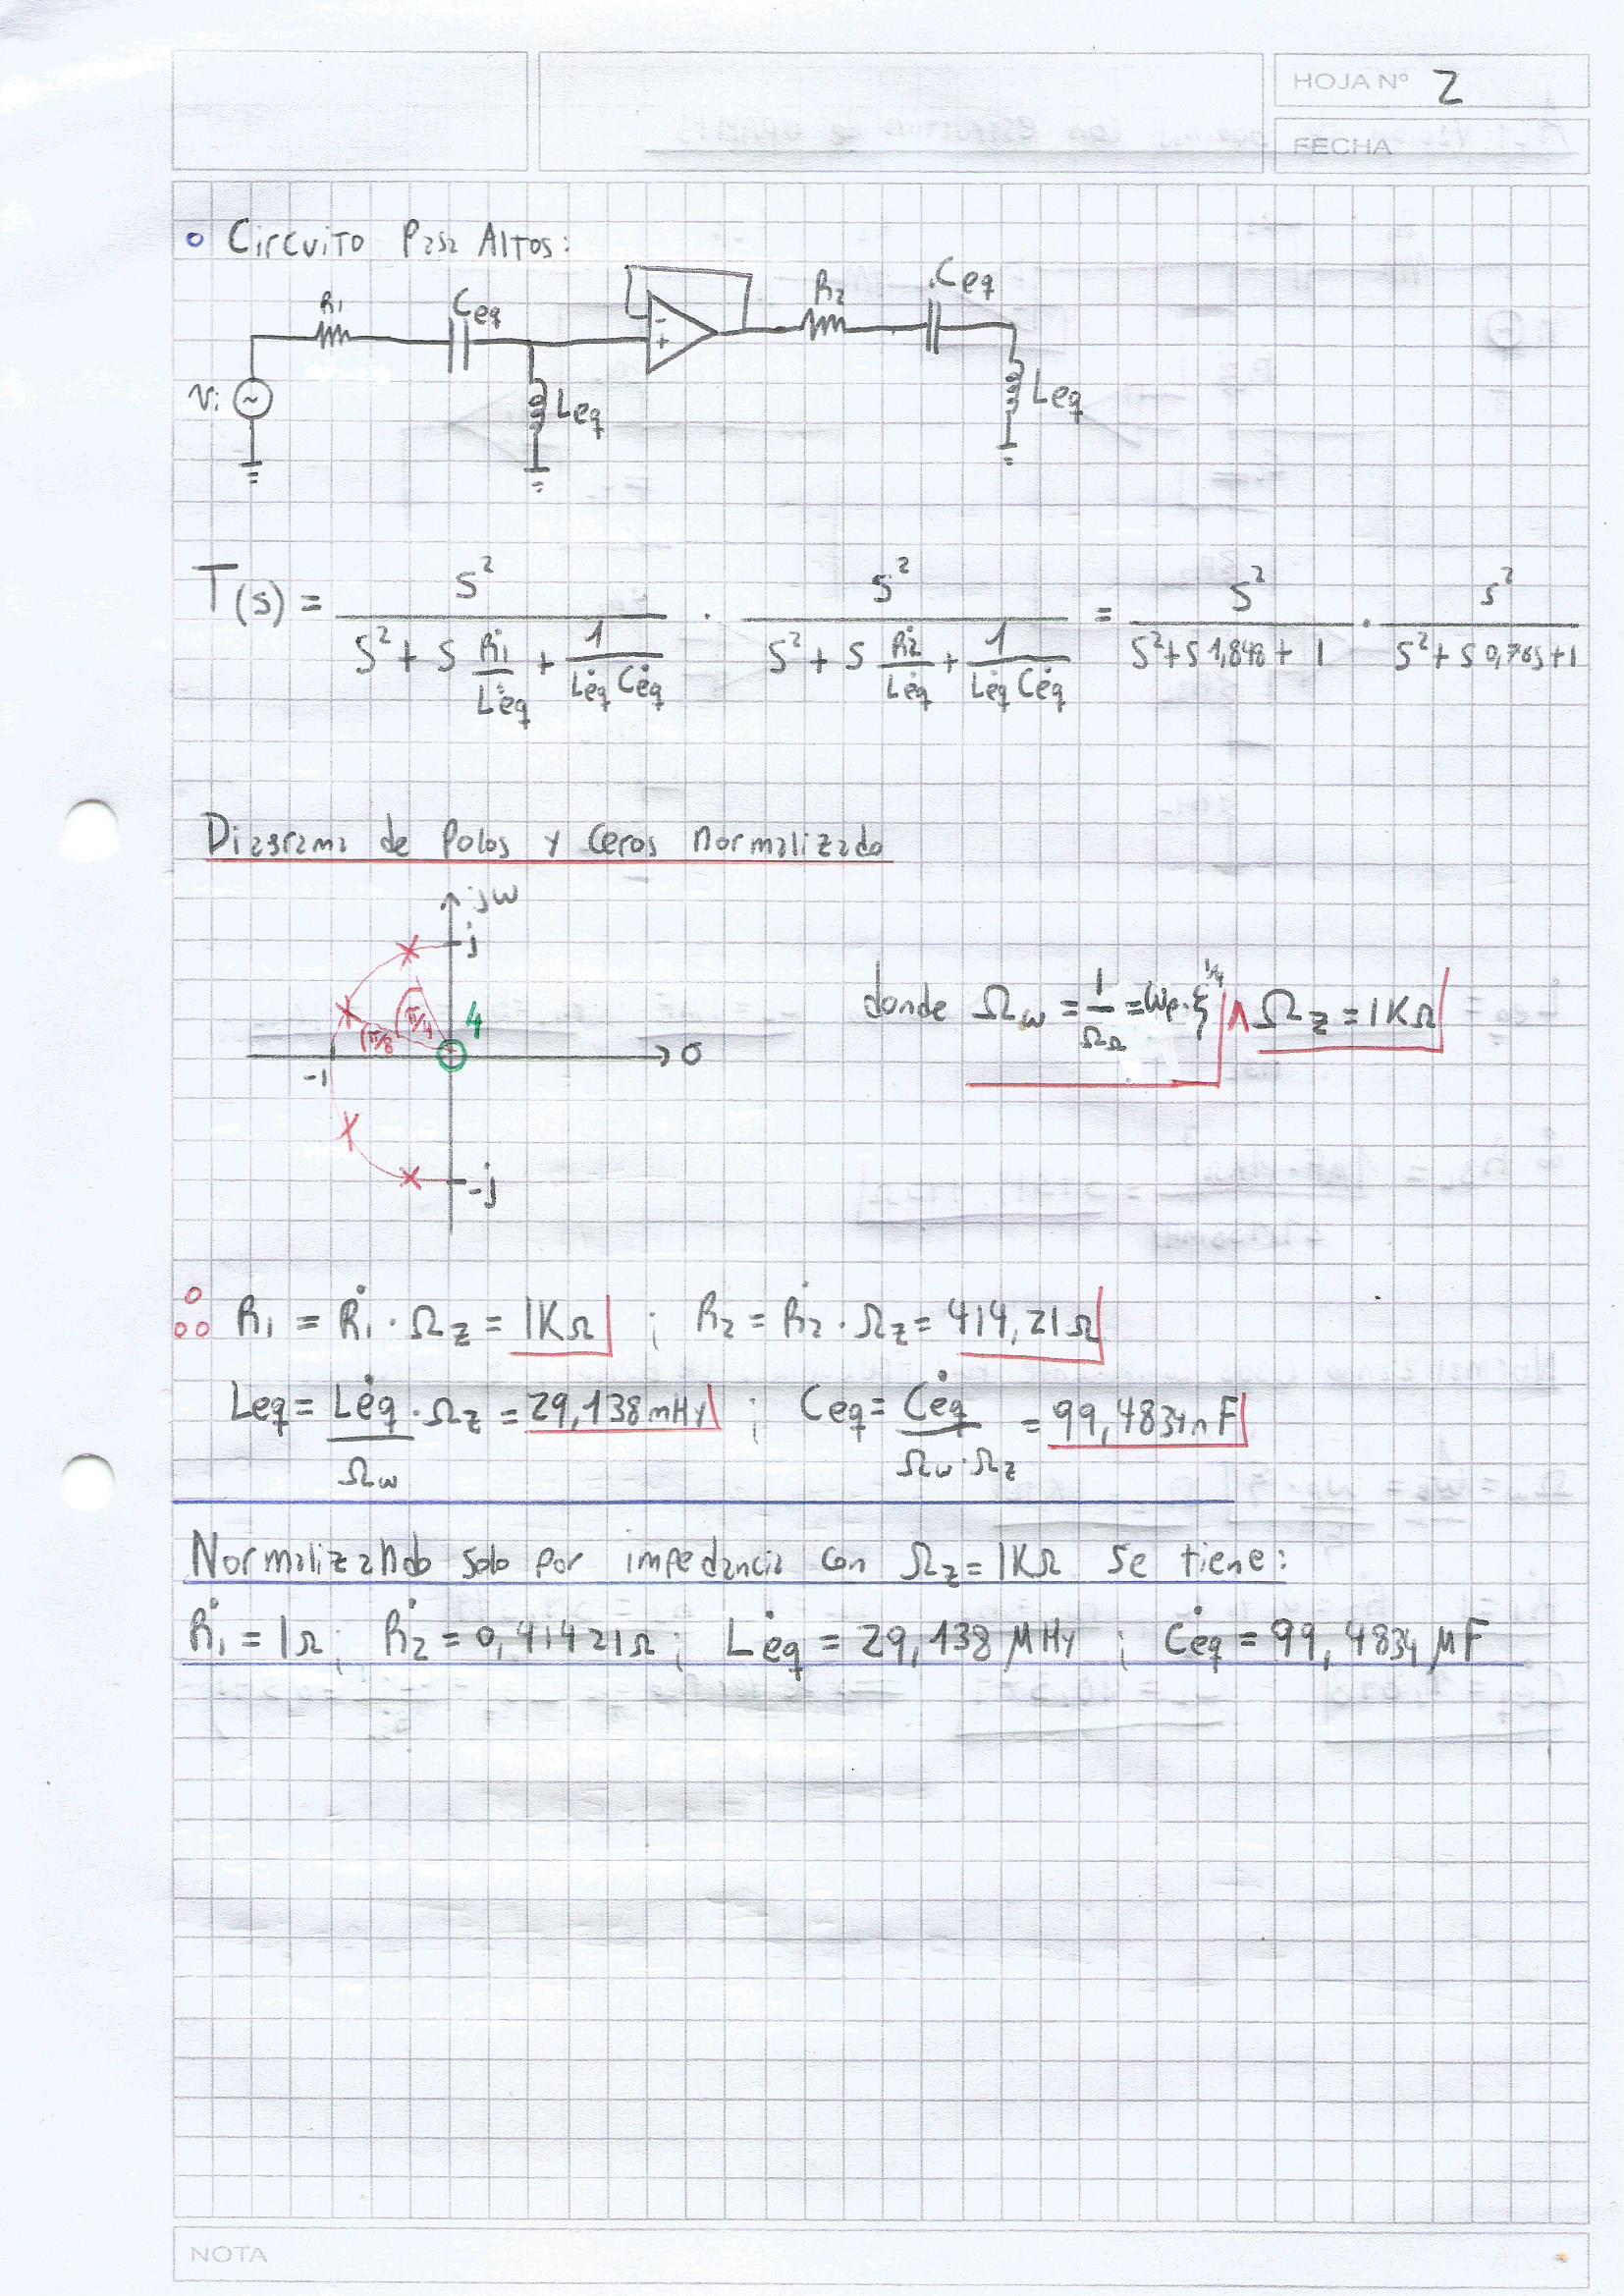 HOJA Nº 2
FECHA
Circuito Pasa Altos:
R1 Ceq R2 Ceq
- +
Vi ~ Leq Leq
T(s) = s² / (s² + s Ṙ1/L̇eq + 1/(L̇eq Ċeq)) · s² / (s² + s Ṙ2/L̇eq + 1/(L̇eq Ċeq)) = s² / (s² + s 1,848 + 1) · s² / (s² + s 0,765 + 1)
Diagrama de Polos y Ceros normalizado
jω
j
π/8 π/4 4
-1 σ
-j
donde Ωω = 1/ΩΩ = ωp·ξ^1/4 ∧ Ωz = 1KΩ
∴ R1 = Ṙ1 · Ωz = 1KΩ ; R2 = Ṙ2 · Ωz = 414,21Ω
Leq = L̇eq/Ωω · Ωz = 29,138mHy ; Ceq = Ċeq/(Ωω·Ωz) = 99,4834nF
Normalizando solo por impedancia con Ωz = 1KΩ se tiene:
Ṙ1 = 1Ω ; Ṙ2 = 0,41421Ω ; L̇eq = 29,138 μHy ; Ċeq = 99,4834 μF
NOTA